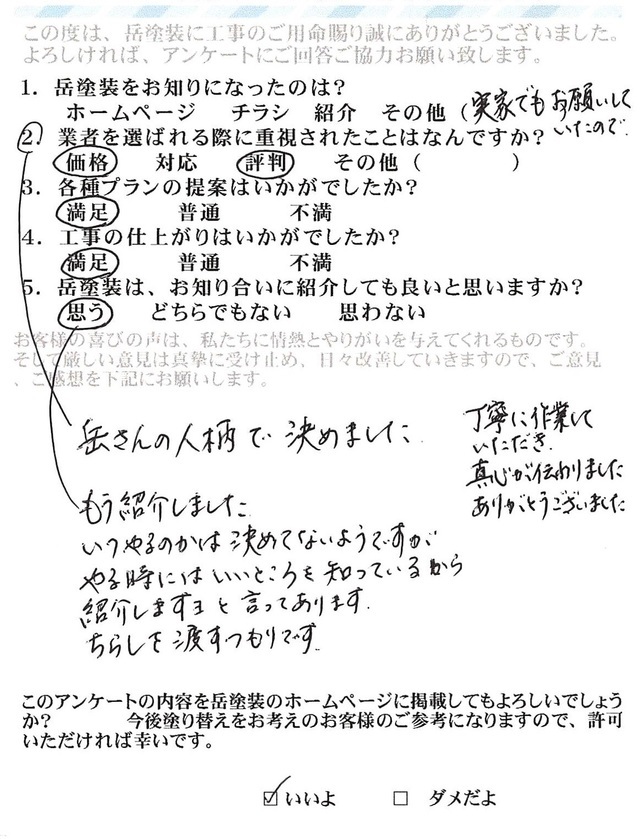 この度は、岳塗装に工事のご用命賜り誠にありがとうございました。
よろしければ、アンケートにご回答ご協力お願い致します。
1．岳塗装をお知りになったのは？
ホームページ　チラシ　紹介　その他（実家でもお願いして
いたので
2．業者を選ばれる際に重視されたことはなんですか？
価格　対応　評判　その他（　　　　）
3．各種プランの提案はいかがでしたか？
満足　普通　不満
4．工事の仕上がりはいかがでしたか？
満足　普通　不満
5．岳塗装は、お知り合いに紹介しても良いと思いますか？
思う　どちらでもない　思わない
お客様の喜びの声は、私たちに情熱とやりがいを与えてくれるものです。
そして厳しい意見は真摯に受け止め、日々改善していきますので、ご意見
、ご感想を下記にお願いします。
岳さんの人柄で決めました
丁寧に作業して
いただき
真心が伝わりました
ありがとうございました
もう紹介しました
いつやるのかは決めてないようですが
やる時にはいいところを知っているから
紹介しますヨと言ってあります.
ちらしを渡すつもりです.
このアンケートの内容を岳塗装のホームページに掲載してもよろしいでしょう
か？　今後塗り替えをお考えのお客様のご参考になりますので、許可
いただければ幸いです。
☑いいよ　□ ダメだよ